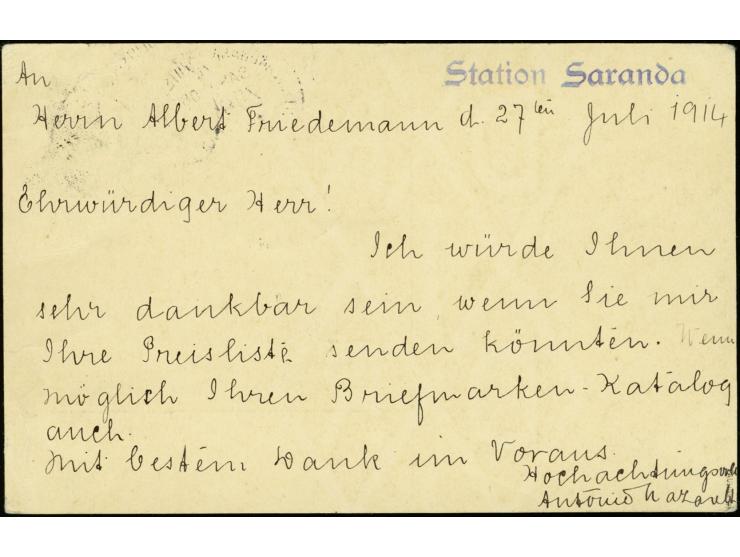 Station Saranda
An
Herrn Albert Friedemann d. 27ten Juli 1914
Ehrwürdiger Herr!
Ich würde Ihnen
sehr dankbar sein, wenn Sie mir
Ihre Preisliste senden könnten. Wenn
möglich Ihren Briefmarken-Katalog
auch.
Mit bestem Dank im Voraus
Hochachtungsvoll
Antonio